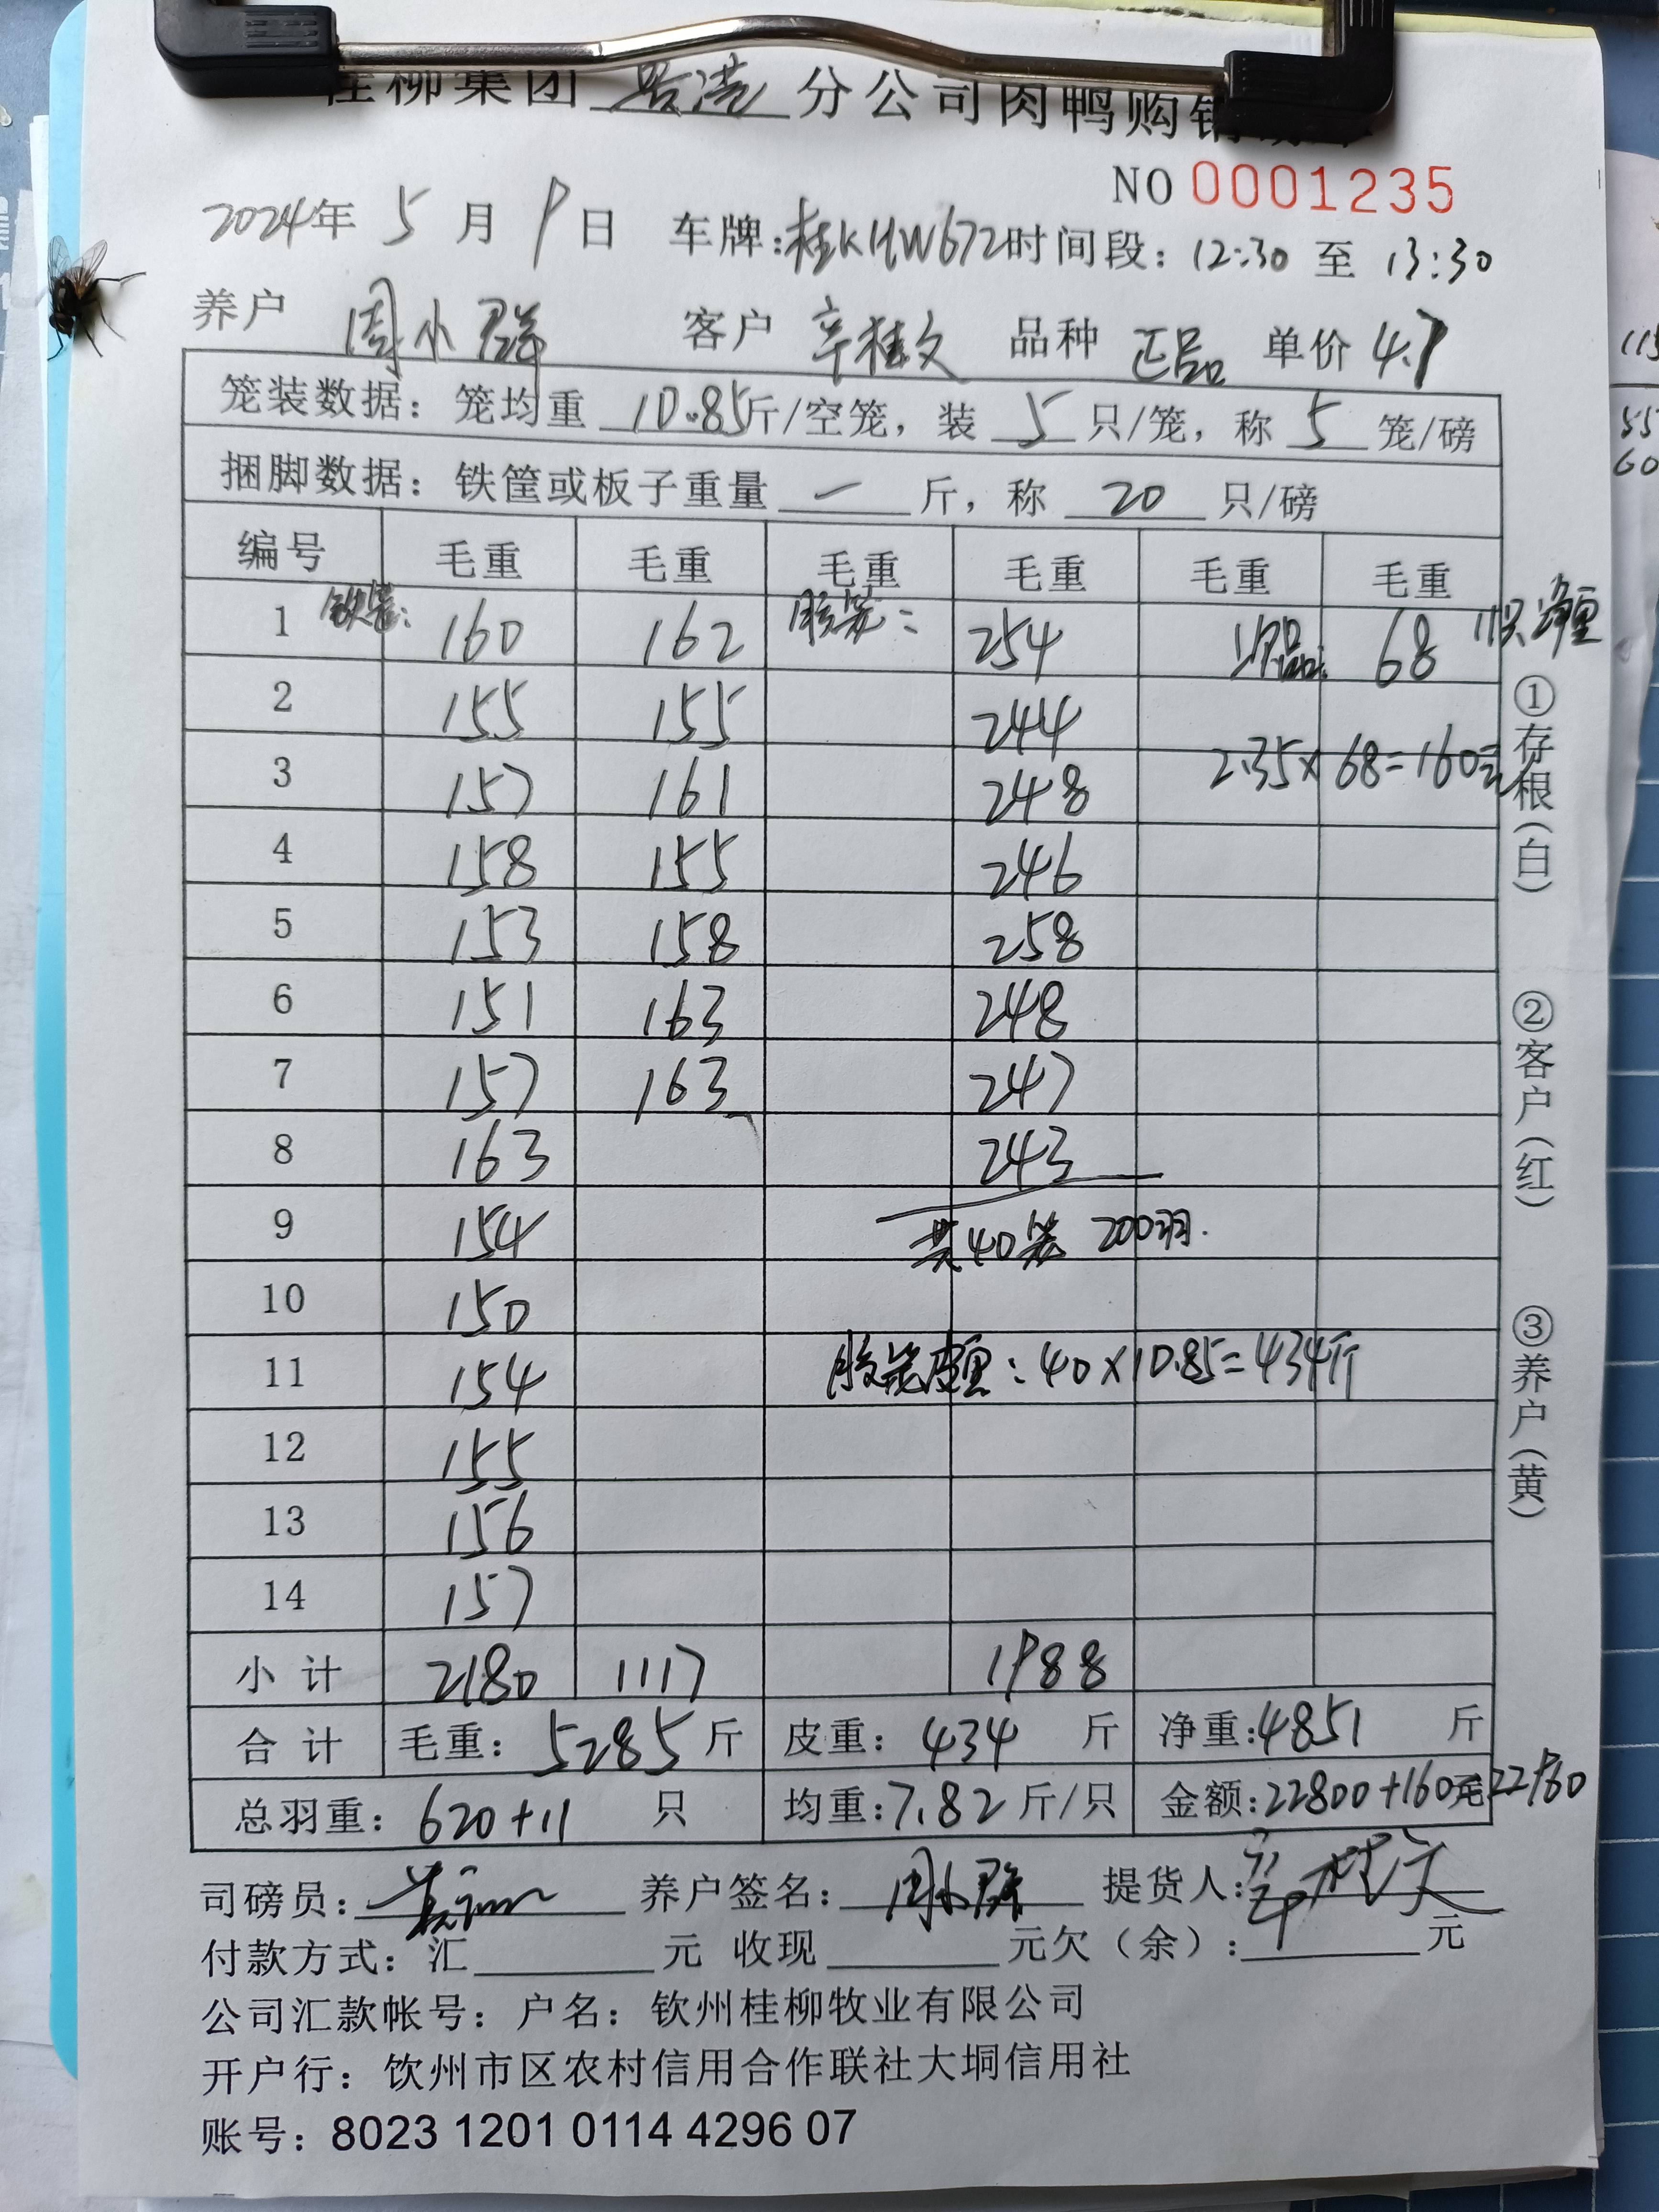 桂柳集团 分公司肉鸭购销
NO 0001235
2024年 5 月 9 日 车牌:桂KHW672 时间段: 12:30 至 13:30
养户 周小群 客户 辛桂文 品种 正品 单价 4.7
笼装数据: 笼均重 10.85斤/空笼, 装 5 只/笼, 称 5 笼/磅
捆脚数据: 铁筐或板子重量 一 斤, 称 20 只/磅
编号 毛重 毛重 毛重 毛重 毛重 毛重
1 铁笼: 160 162 胶笼: 254 次品: 68 11只 净重
2 155 155 244
3 157 161 248 2.35×68=160元
4 158 155 246
5 153 158 258
6 151 163 248
7 157 163 247
8 163 243
9 154 共40笼 200羽.
10 150
11 154 胶笼皮重: 40×10.85=434斤
12 155
13 156
14 157
小计 2180 1117 1988
合计 毛重: 5285 斤 皮重: 434 斤 净重:4851 斤
总羽重: 620+11 只 均重:7.82 斤/只 金额:22800+160元 22960
司磅员: 养户签名: 周小群 提货人: 辛桂文
付款方式: 汇 元 收现 元欠(余): 元
公司汇款帐号: 户名: 钦州桂柳牧业有限公司
开户行: 钦州市区农村信用合作联社大垌信用社
账号: 8023 1201 0114 4296 07
①存根(白)
②客户(红)
③养户(黄)
115
55
60